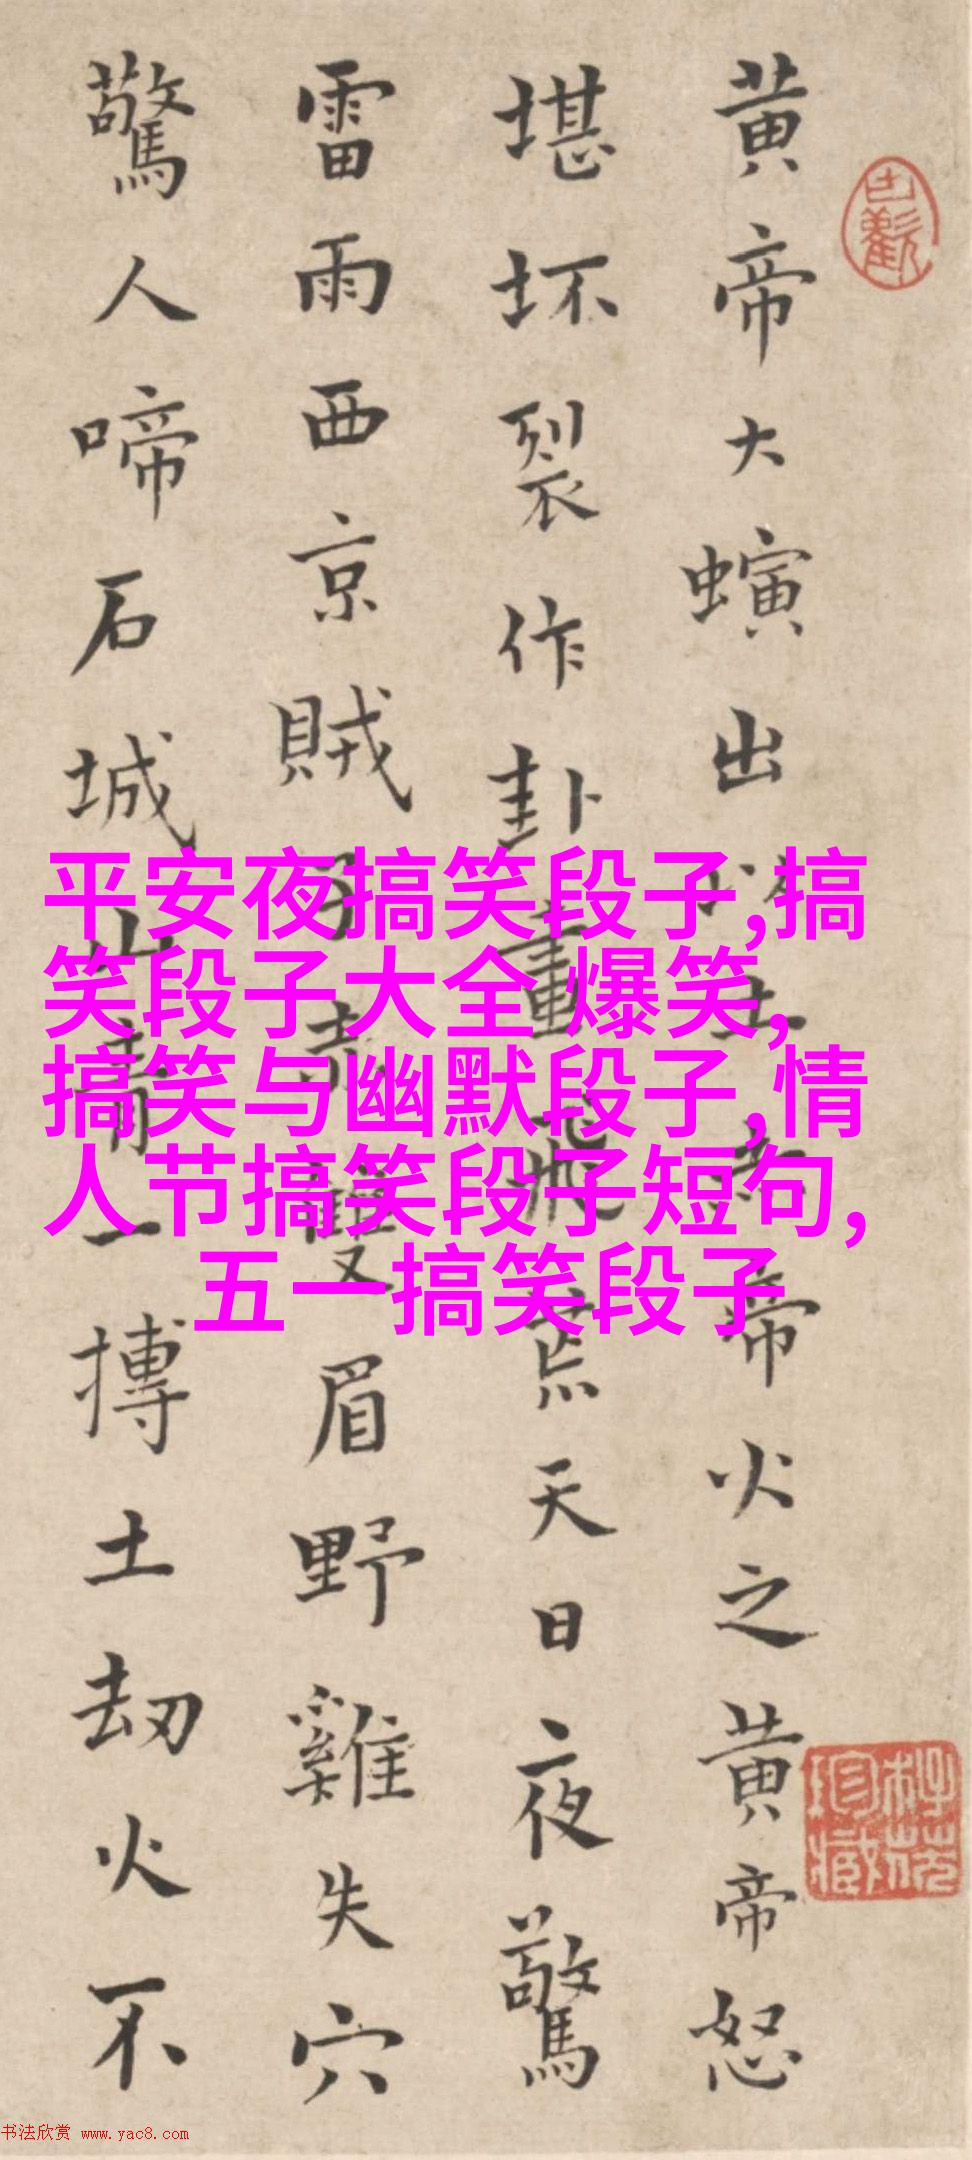 黄帝大螾出土帝火之黄帝怒
堪坏裂作卦畫飛天日夜驚
雷雨西京賊子赤雙眉野雞失穴
驚人啼石城山青一摶土劫火不
平安夜搞笑段子,搞
笑段子大全 爆笑,
搞笑与幽默段子,情
人节搞笑段子短句,
五一搞笑段子
书法欣赏 www.yac8.com